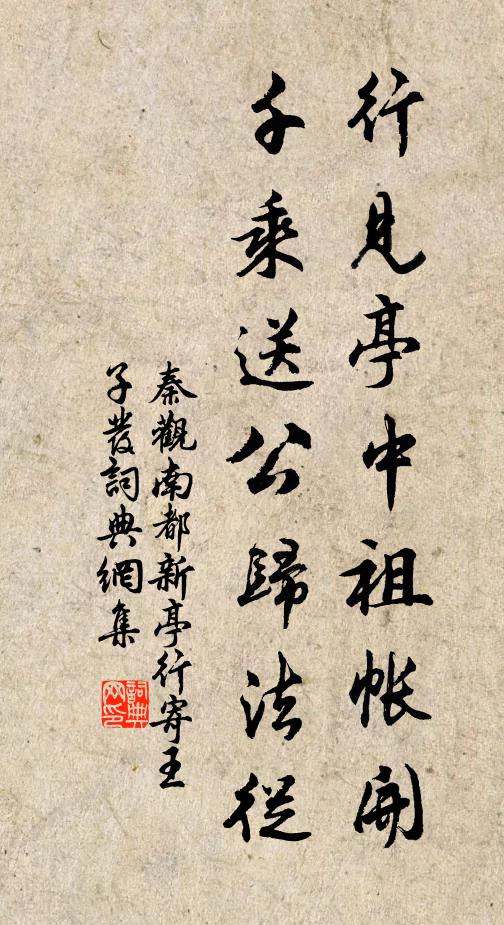 行見亭中祖帳開
千乘送公歸法從
秦觀南都新亭行寄王
子發詞典網集
詞典
网印